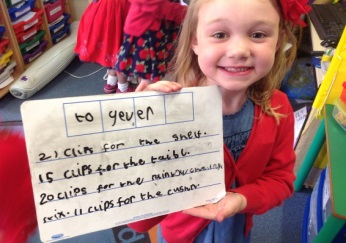 to gever
21 clips for the shelf.
15 clips for the taibl.
20 clips for the rainbow
11 clips for the cushn.